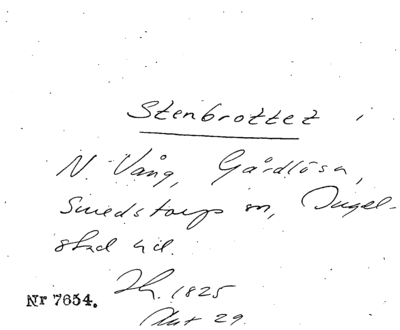 Stenbrottet i
N. Vång, Gårdlösa,
Smedstorps sn, Ingel-
stad hd.
Nr 7654. Zh. 1825
Akt 29.